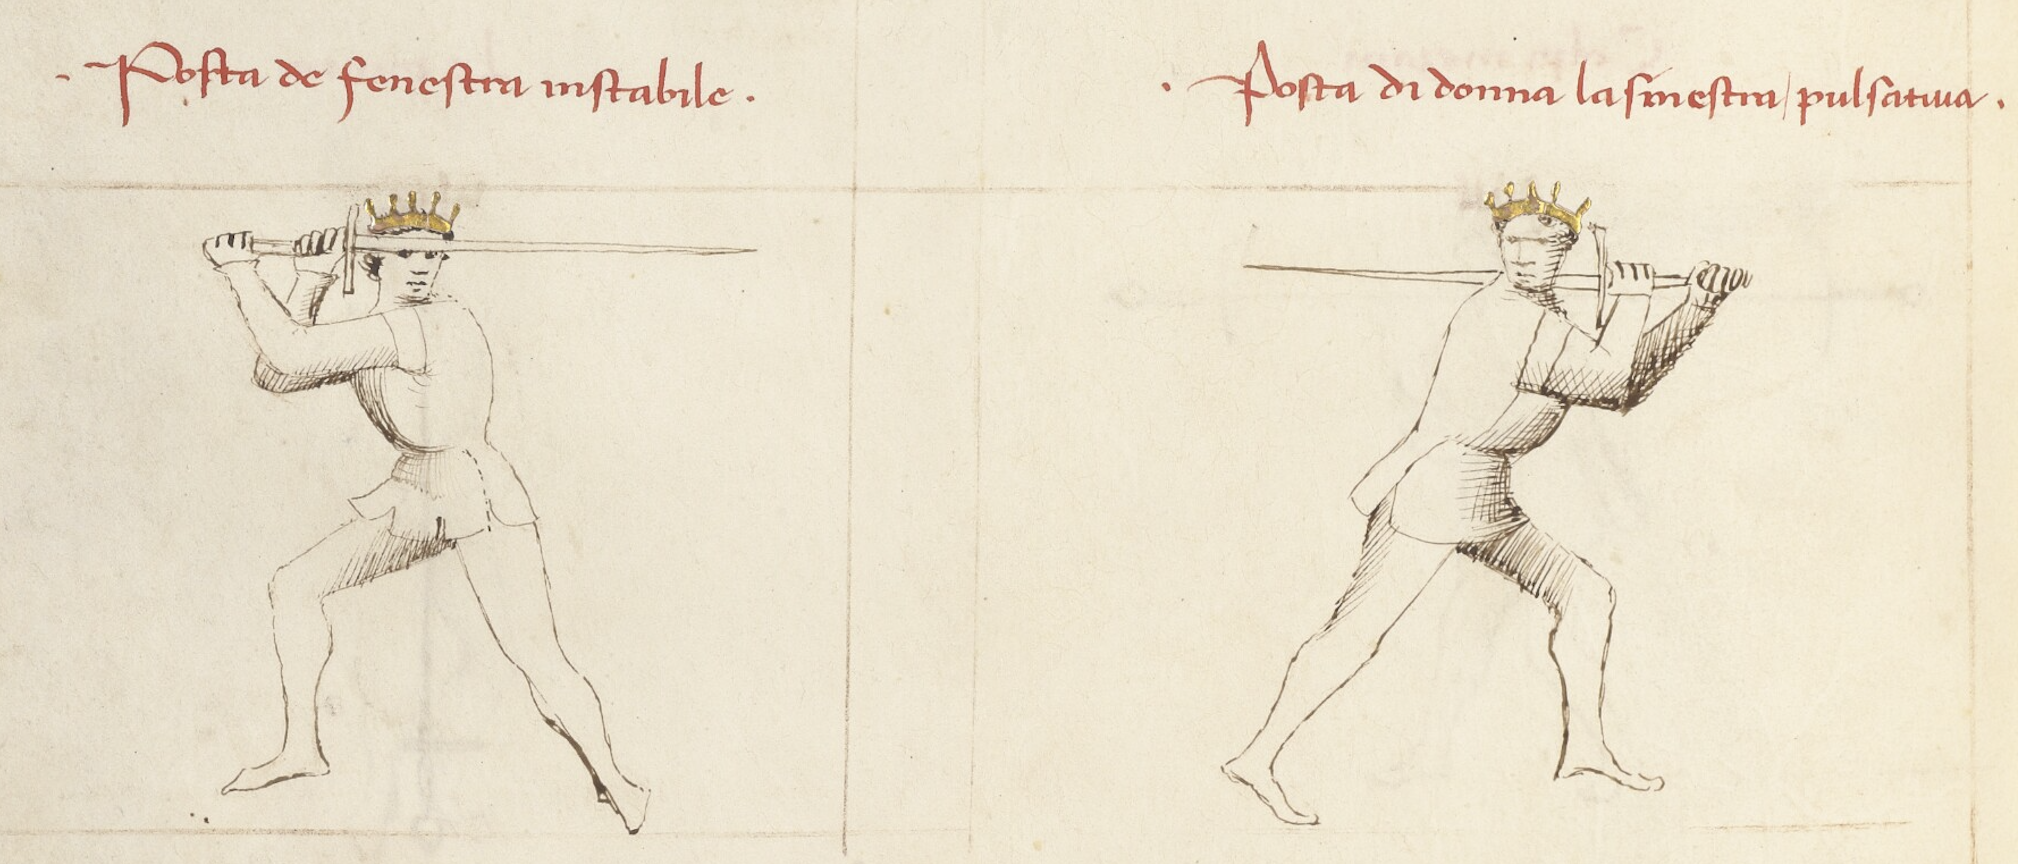 · Posta de fenestra instabile ·
· Posta di donna la sinestra / pulsativa ·